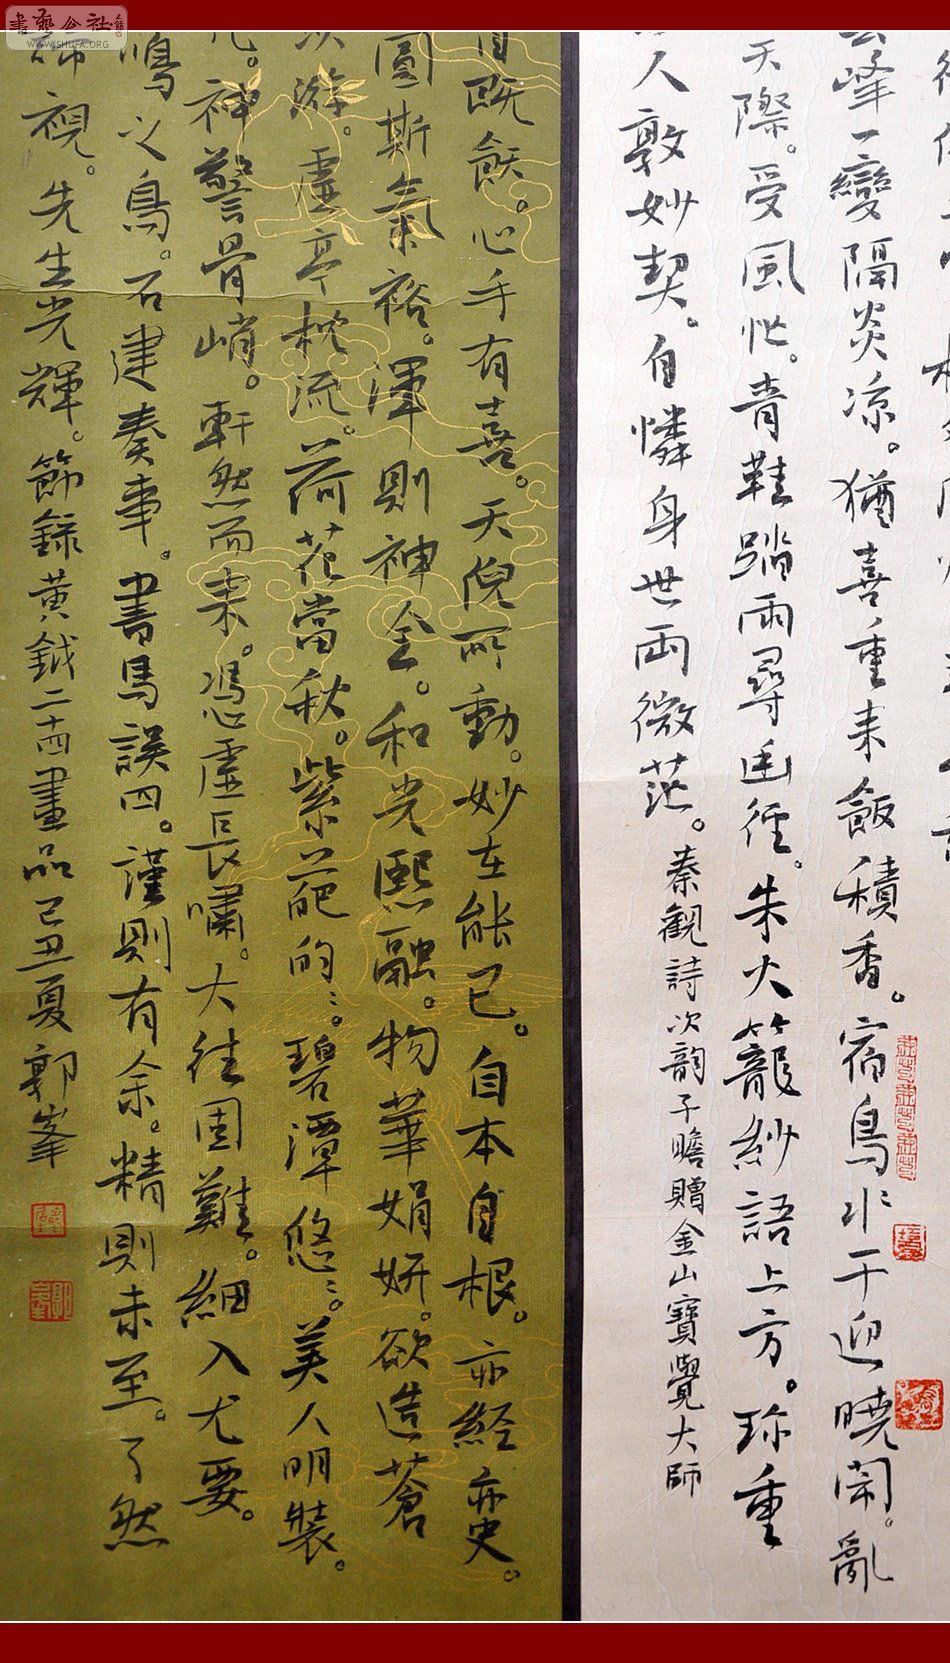 峰一變隔炎涼。猶喜重来飯積香。宿鳥水干迎曉闹。亂
天際。受風忙。青鞋踏雨尋幽徑。朱火籠紗語上方。珍重
人敦妙契。自憐身世兩微茫。秦觀詩次韵子瞻贈金山寶覺大師
目既飫。心手有喜。天倪所動。妙在能已。自本自根。亦经亦史。
圖斯氣裕。渾則神全。和光熙融。物華娟妍。欲造蒼
游。虚亭枕流。荷花當秋。紫葩的〻。碧潭悠〻。美人明裝。
神警骨峭。軒然而来。憑虚長嘯。大往固難。細入尤要。
鳴之鳥。石建奏事。書馬誤四。謹則有余。精則未至。了然
諦視。先生光輝。節録黄鉞二十四畫品己丑夏郭峯
書藝公社
WWW.SHUFA.ORG